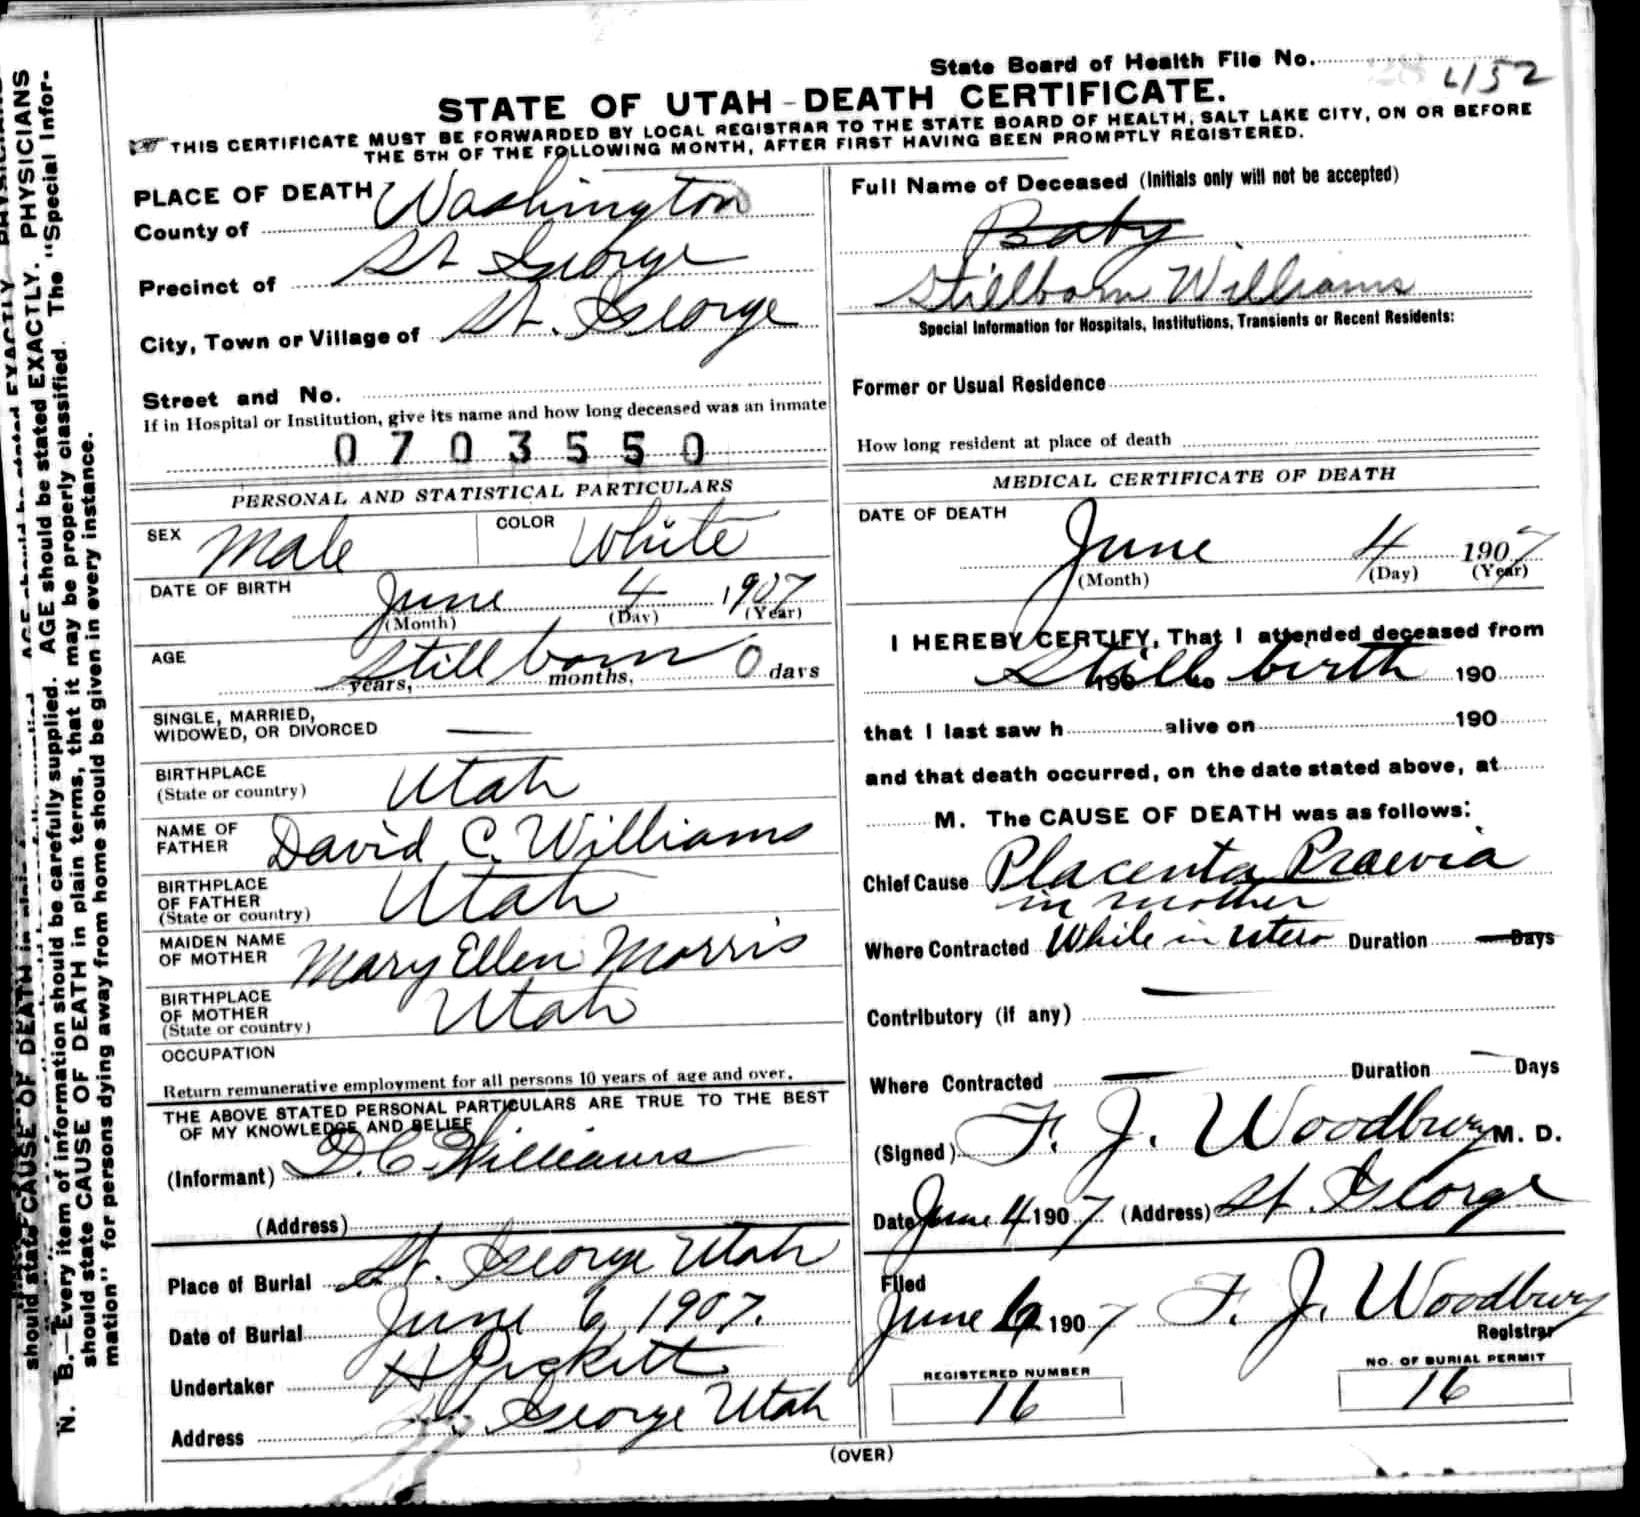 State Board of Health File No. 4152
STATE OF UTAH - DEATH CERTIFICATE.
THIS CERTIFICATE MUST BE FORWARDED BY LOCAL REGISTRAR TO THE STATE BOARD OF HEALTH, SALT LAKE CITY, ON OR BEFORE
THE 5TH OF THE FOLLOWING MONTH, AFTER FIRST HAVING BEEN PROMPTLY REGISTERED.
PLACE OF DEATH
County of Washington
Precinct of St George
City, Town or Village of St. George
Street and No.
If in Hospital or Institution, give its name and how long deceased was an inmate
0 7 0 3 5 5 0
PERSONAL AND STATISTICAL PARTICULARS
SEX Male COLOR White
DATE OF BIRTH June 4 1907
(Month) (Day) (Year)
AGE Stillborn 0 days
years, months,
SINGLE, MARRIED,
WIDOWED, OR DIVORCED —
BIRTHPLACE
(State or country) Utah
NAME OF
FATHER David C. Williams
BIRTHPLACE
OF FATHER
(State or country) Utah
MAIDEN NAME
OF MOTHER Mary Ellen Morris
BIRTHPLACE
OF MOTHER
(State or country) Utah
OCCUPATION
Return remunerative employment for all persons 10 years of age and over.
THE ABOVE STATED PERSONAL PARTICULARS ARE TRUE TO THE BEST
OF MY KNOWLEDGE AND BELIEF
(Informant) D. C. Williams
(Address)
Place of Burial St. George Utah
Date of Burial June 6, 1907.
Undertaker H Pickett
Address St. George Utah
Full Name of Deceased (Initials only will not be accepted)
Baby
Stillborn Williams
Special Information for Hospitals, Institutions, Transients or Recent Residents:
Former or Usual Residence
How long resident at place of death
MEDICAL CERTIFICATE OF DEATH
DATE OF DEATH
June 4 1907
(Month) (Day) (Year)
I HEREBY CERTIFY, That I attended deceased from
Still birth 190 to 190
that I last saw h alive on 190
and that death occurred, on the date stated above, at
M. The CAUSE OF DEATH was as follows:
Chief Cause Placenta Praevia
in mother
Where Contracted While in utero Duration — Days
Contributory (if any) —
Where Contracted — Duration — Days
(Signed) F. J. Woodbury M. D.
Date June 4 1907 (Address) St. George
Filed
June 6 1907 F. J. Woodbury
Registrar
REGISTERED NUMBER
16
NO. OF BURIAL PERMIT
16
(OVER)
N. B.—Every item of information should be carefully supplied. AGE should be stated EXACTLY. PHYSICIANS
should state CAUSE OF DEATH in plain terms, that it may be properly classified. The "Special Infor-
mation" for persons dying away from home should be given in every instance.